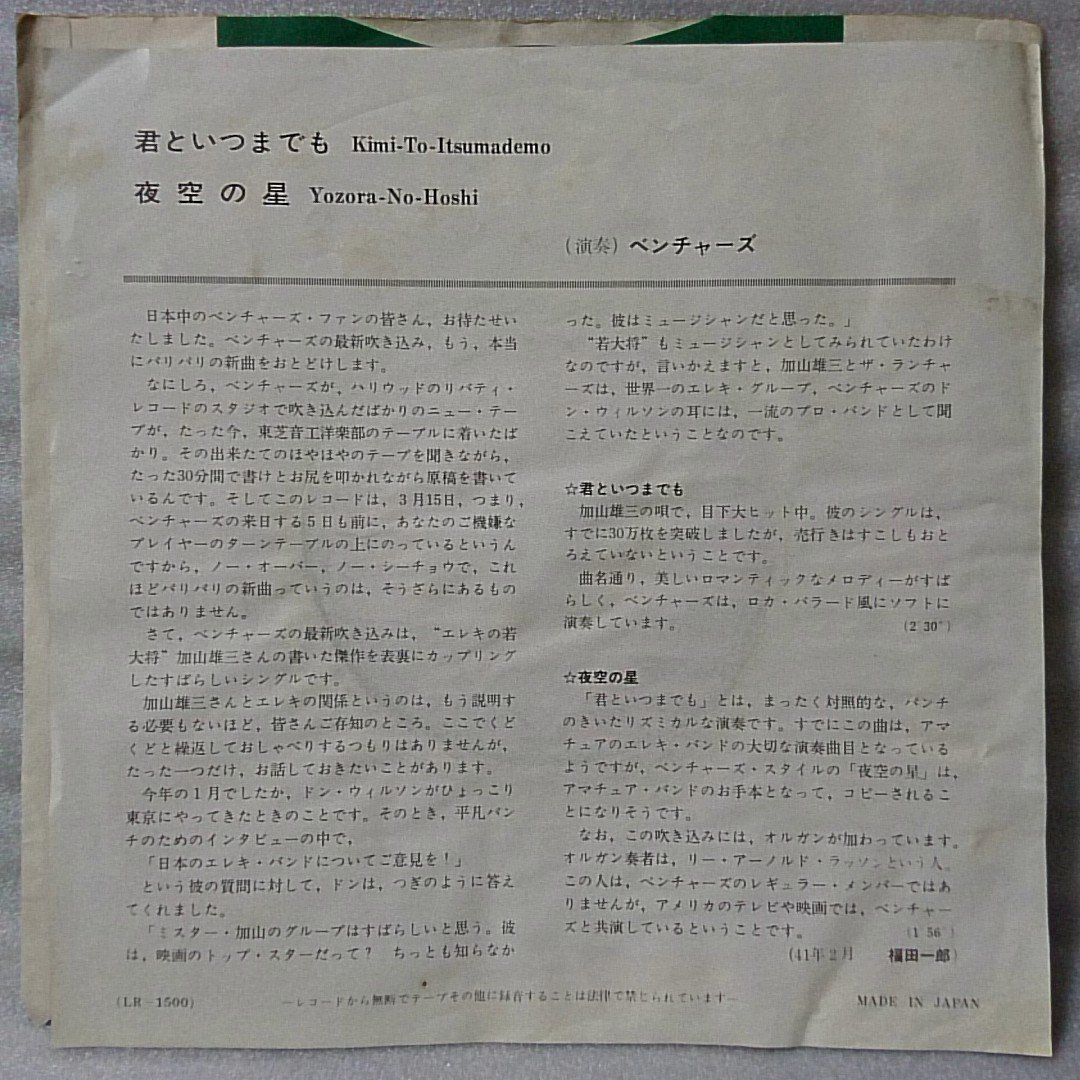 君といつまでも Kimi-To-Itsumademo
夜空の星 Yozora-No-Hoshi
(演奏) ベンチャーズ
日本中のベンチャーズ・ファンの皆さん，お待たせい
たしました。ベンチャーズの最新吹き込み，もう，本当
にバリバリの新曲をおとどけします。
なにしろ，ベンチャーズが，ハリウッドのリバティ・
レコードのスタジオで吹き込んだばかりのニュー・テー
プが，たった今，東芝音工洋楽部のテーブルに着いたば
かり。その出来たてのほやほやのテープを聞きながら，
たった30分間で書けとお尻を叩かれながら原稿を書いて
いるんです。そしてこのレコードは，3月15日，つまり，
ベンチャーズの来日する5日も前に，あなたのご機嫌な
プレイヤーのターンテーブルの上にのっているというん
ですから，ノー・オーバー，ノー・シーチョウで，これ
ほどバリバリの新曲っていうのは，そうざらにあるもの
ではありません。
さて，ベンチャーズの最新吹き込みは，“エレキの若
大将”加山雄三さんの書いた傑作を表裏にカップリング
したすばらしいシングルです。
加山雄三さんとエレキの関係というのは，もう説明す
る必要もないほど，皆さんご存知のところ。ここでくど
くどと繰返しておしゃべりするつもりはありませんが，
たった一つだけ，お話しておきたいことがあります。
今年の1月でしたか，ドン・ウィルソンがひょっこり
東京にやってきたときのことです。そのとき，平凡パン
チのためのインタビューの中で，
「日本のエレキ・バンドについてご意見を！」
という彼の質問に対して，ドンは，つぎのように答え
てくれました。
「ミスター・加山のグループはすばらしいと思う。彼
は，映画のトップ・スターだって？ ちっとも知らなか
った。彼はミュージシャンだと思った。」
“若大将”もミュージシャンとしてみられていたわけ
なのですが，言いかえますと，加山雄三とザ・ランチャ
ーズは，世界一のエレキ・グループ，ベンチャーズのド
ン・ウィルソンの耳には，一流のプロ・バンドとして聞
こえていたということなのです。
☆君といつまでも
加山雄三の唄で，目下大ヒット中。彼のシングルは，
すでに30万枚を突破しましたが，売行きはすこしもおと
ろえていないということです。
曲名通り，美しいロマンティックなメロディーがすば
らしく，ベンチャーズは，ロカ・バラード風にソフトに
演奏しています。 (2′30″)
☆夜空の星
「君といつまでも」とは，まったく対照的な，パンチ
のきいたリズミカルな演奏です。すでにこの曲は，アマ
チュアのエレキ・バンドの大切な演奏曲目となっている
ようですが，ベンチャーズ・スタイルの「夜空の星」は，
アマチュア・バンドのお手本となって，コピーされるこ
とになりそうです。
なお，この吹き込みには，オルガンが加わっています。
オルガン奏者は，リー・アーノルド・ラッソンという人。
この人は，ベンチャーズのレギュラー・メンバーではあ
りませんが，アメリカのテレビや映画では，ベンチャー
ズと共演しているということです。 (1′56″)
(41年2月 福田一郎)
(LR-1500)
―レコードから無断でテープその他に録音することは法律で禁じられています―
MADE IN JAPAN